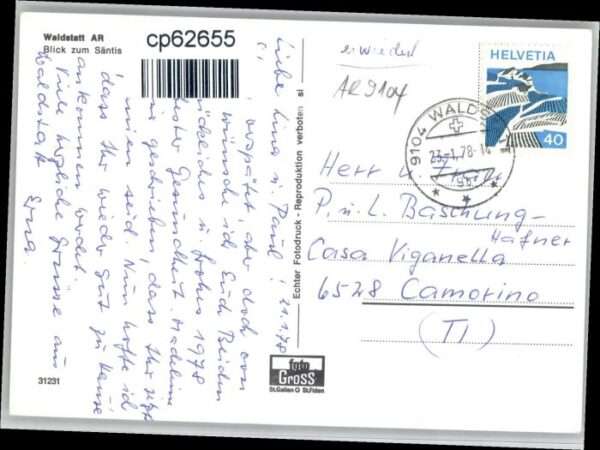 Waldstatt AR
Blick zum Säntis
cp62655
erwiedert
AR 9104
HELVETIA
40
9104 WALDSTATT
23-1.78-14
Liebe Lina u. Paul! 21.1.78
verspätet, aber doch von
wünsche ich Euch Beiden
glückliches u. frohes 1978
bester Gesundheit. Madeleine
mir geschrieben, dass Ihr jetzt
seid. Nun hoffe ich
dass Ihr wieder gut zu Hause
ankommen werdet.
Viele herzliche Grüsse aus
Waldstatt
Erna.
Herr u. Frau
P. u. L. Bäschung-
Hafner
Casa Viganella
6528 Camorino
(TI)
Echter Fotodruck - Reproduktion verboten
31231
foto
Gross
St.Gallen O St.Fiden